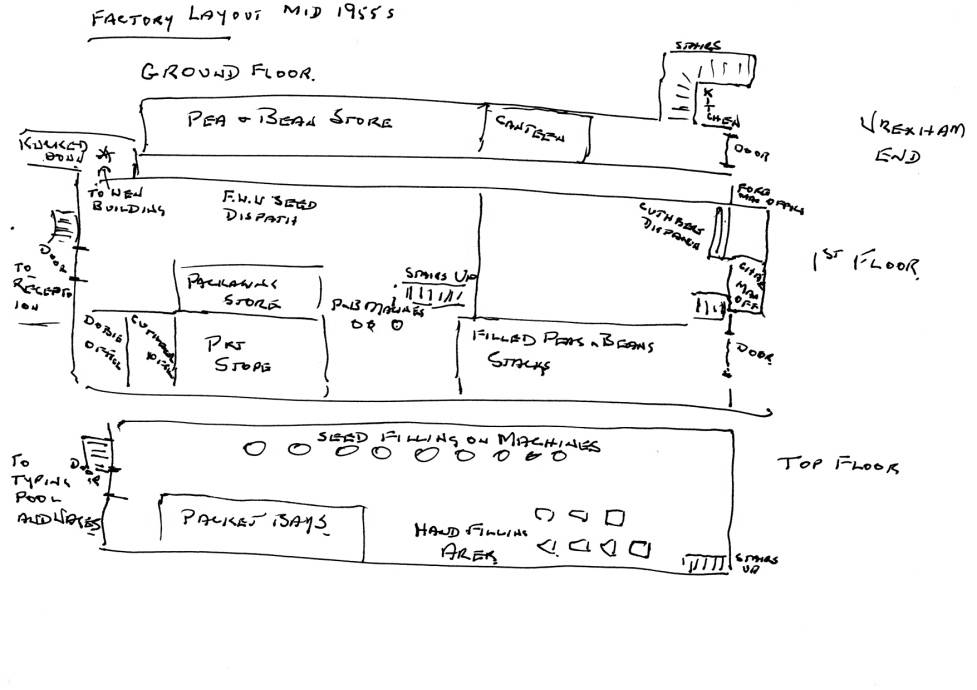 FACTORY LAYOUT MID 1955s
GROUND FLOOR.
STAIRS
KIT
CHEN
PEA & BEAN STORE
CANTEEN
DOOR
WREXHAM
END
KNOCKED
DOWN
TO NEW
BUILDING
F.W.W SEED
DISPATH
CUTHBERT
DISPATCH
FORE
MAN OFFICE
1ST FLOOR
DOOR
TO
RECEPT
ION
PACKAGING
STORE
STAIRS UP
MAN
OFF
DOBIE
OFFICE
OFFICE
PKT
STORE
MACINES
FILLED PEAS & BEANS
STACKS
DOOR
SEED FILLING ON MACHINES
TOP FLOOR
DOOR
TO
TYPING
POOL
AND WAGES
PACKET BAYS
HAND FILLING
AREA
STAIRS
UP